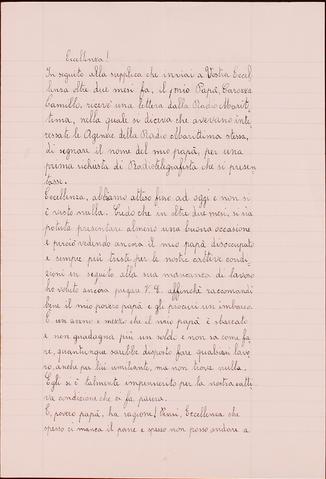 Eccellenza!
In seguito alla supplica che inviai a Vostra Eccel
lenza oltre due mesi fa, il mio Papà, Carozza
Camillo, ricevé una lettera dalla Radio Marit
tima, nella quale si diceva che avevano inte
ressate le Agenzie della Radio Marittima stessa,
di segnare il nome del mio papà, per una
prima richiesta di Radiotelegrafista che si presen
tasse.
Eccellenza, abbiamo atteso fino ad oggi e non si
è visto nulla. Credo che in oltre due mesi, si sia
potuta presentare almeno una buona occasione
e perciò vedendo ancora il mio papà disoccupato
e sempre più triste per le nostre cattive condi
zioni in seguito alla sua mancanza di lavoro
ho voluto ancora pregare V. E. affinchè raccomandi
bene il mio povero papà e gli procuri un imbarco.
È un anno e mezzo che il mio papà è sbarcato
e non guadagna più un soldo e non sa come fa
re, quantunque sarebbe disposto fare qualsiasi lavo
ro, anche più umiliante, ma non trova nulla.
Egli si è talmente impensierito per la nostra catti
va condizione che ci fa paura.
E, povero papà, ha ragione! Pensi, Eccellenza che
spesso ci manca il pane e spesso non posso andare a